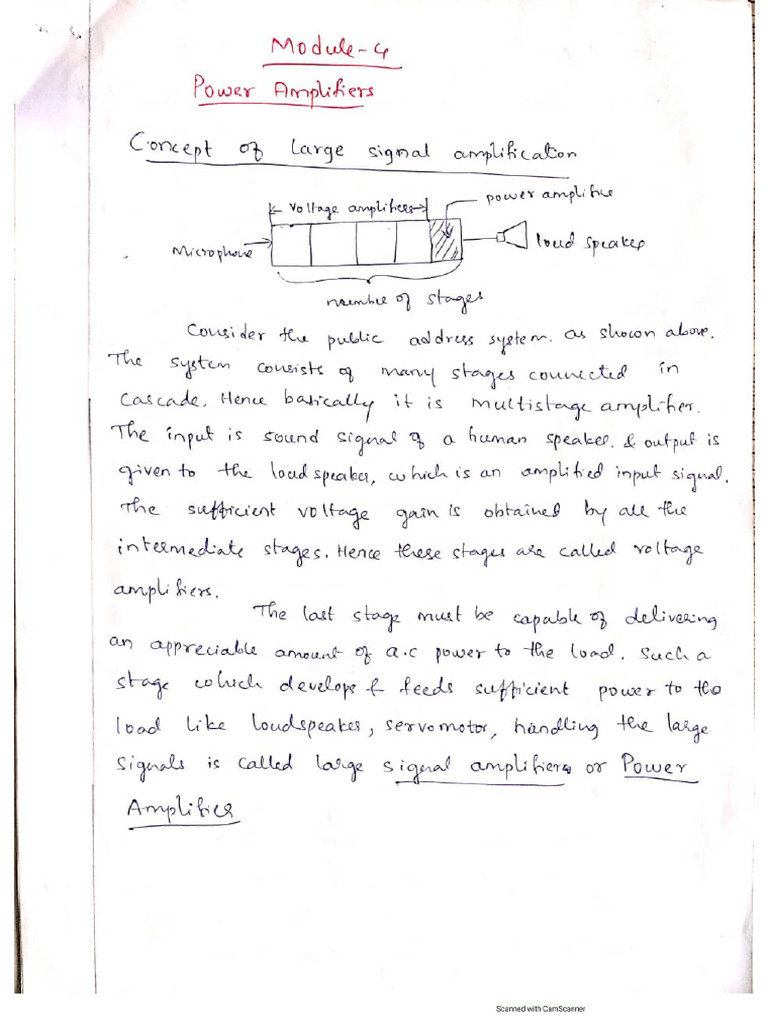 Module-4
Power Amplifiers
Concept of Large signal amplification
voltage amplifiers
power amplifier
Microphone
loud speaker
number of stages
Consider the public address system. as shown above.
The system consists of many stages connected in
cascade. Hence basically it is multistage amplifier.
The input is sound signal of a human speaker. & output is
given to the loudspeaker, which is an amplified input signal.
The sufficient voltage gain is obtained by all the
intermediate stages. Hence these stages are called voltage
amplifiers.
The last stage must be capable of delivering
an appreciable amount of a.c power to the load. Such a
stage which develops & feeds sufficient power to the
load like loudspeaker, servomotor, handling the large
signals is called large signal amplifiers or Power
Amplifier
Scanned with CamScanner